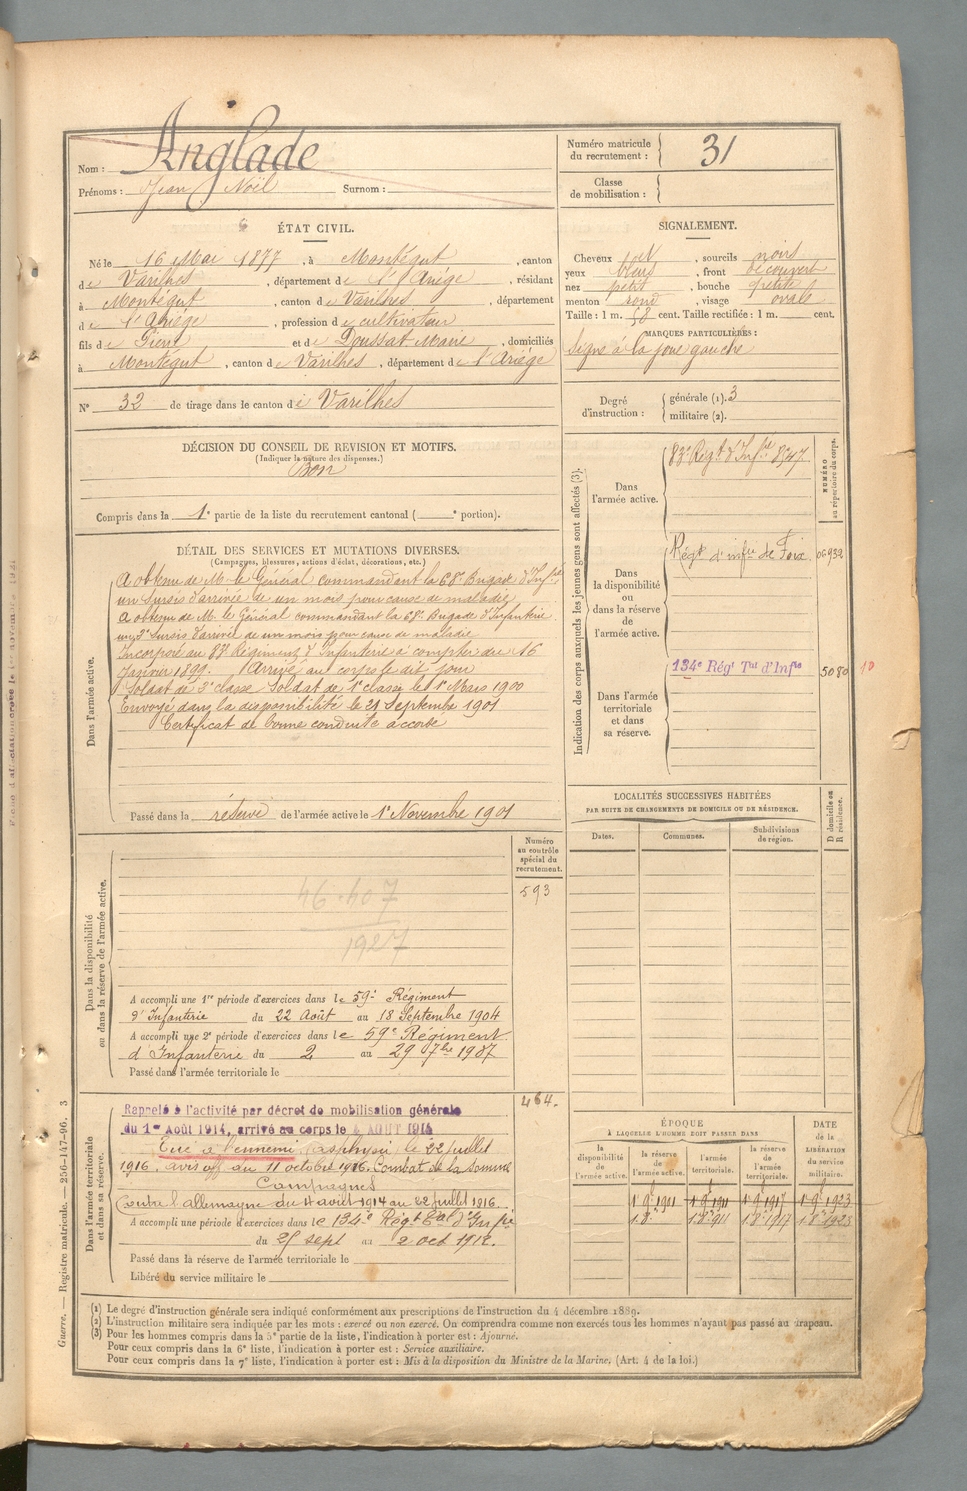 Nom : Anglade
Prénoms : Jean Noël Surnom :
Numéro matricule du recrutement : 31
Classe de mobilisation :
ÉTAT CIVIL.
Né le 16 Mai 1877, à Montégut, canton
de Varilhes, département de l'Ariège, résidant
à Montégut, canton de Varilhes, département
de l'Ariège, profession de cultivateur
fils de Pierre et de Doussat Marie, domiciliés
à Montégut, canton de Varilhes, département de l'Ariège
N° 32 de tirage dans le canton de Varilhes
SIGNALEMENT.
Cheveux , sourcils noirs
yeux bleus, front découvert
nez petit, bouche petite
menton rond, visage ovale
Taille : 1 m. 58 cent. Taille rectifiée : 1 m. cent.
MARQUES PARTICULIÈRES :
Signe à la joue gauche
Degré d'instruction : générale (1). 3
militaire (2).
DÉCISION DU CONSEIL DE REVISION ET MOTIFS.
(Indiquer la nature des dispenses.)
Bon
Compris dans la 1e partie de la liste du recrutement cantonal ( e portion).
DÉTAIL DES SERVICES ET MUTATIONS DIVERSES.
(Campagnes, blessures, actions d'éclat, décorations, etc.)
Dans l'armée active.
A obtenu de M. le Général commandant la 68e Brigade d'Infrie
un sursis d'arrivée de un mois pour cause de maladie
A obtenu de M. le Général commandant la 68e Brigade d'Infanterie
un 2e Sursis d'arrivée de un mois pour cause de maladie
Incorporé au 83e Régiment d'Infanterie à compter du 16
Janvier 1899. Arrivé au corps le dit jour
Soldat de 2e classe. Soldat de 1e classe le 1e Mars 1900
Envoyé dans la disponibilité le 21 Septembre 1901
Certificat de bonne conduite accordé
Passé dans la réserve de l'armée active le 1e Novembre 1901
Indication des corps auxquels les jeunes gens sont affectés (3).
NUMÉRO au répertoire du corps.
Dans l'armée active. 83e Régt d'Infrie
Dans la disponibilité ou dans la réserve de l'armée active. Régt d'infrie de Foix 06932
Dans l'armée territoriale et dans sa réserve. 134e Régt Tal d'Infie 5080 10
LOCALITÉS SUCCESSIVES HABITÉES
PAR SUITE DE CHANGEMENTS DE DOMICILE OU DE RÉSIDENCE.
Dates. Communes. Subdivisions de région. D domicile ou R résidence.
Numéro au contrôle spécial du recrutement.
593
46.407
1927
Dans la disponibilité ou dans la réserve de l'armée active.
A accompli une 1re période d'exercices dans le 59e Régiment
d'Infanterie du 22 Août au 18 Septembre 1904
A accompli une 2e période d'exercices dans le 59e Régiment
d'Infanterie du 2 au 29 7bre 1907
Passé dans l'armée territoriale le
464.
Dans l'armée territoriale et dans sa réserve.
Rappelé à l'activité par décret de mobilisation générale
du 1er Août 1914, arrivé au corps le 4 AOUT 1914
Tué à l'ennemi (asphyxié) le 22 juillet
1916. avis off. du 11 octobre 1916. Combat de la Somme
Campagnes
Contre l'Allemagne du 4 août 1914 au 22 juillet 1916.
A accompli une période d'exercices dans le 134e Régt Tal d'Infie
du 25 sept au 2 oct 1912.
Passé dans la réserve de l'armée territoriale le
Libéré du service militaire le
ÉPOQUE
À LAQUELLE L'HOMME DOIT PASSER DANS
DATE de la LIBÉRATION du service militaire.
la disponibilité de l'armée active. la réserve de l'armée active. l'armée territoriale. la réserve de l'armée territoriale.
1 9 1911 1 9 1911 1 9 1917 1 9 1923
1 8 1 8 1911 1 8 1917 1 8 1923
(1) Le degré d'instruction générale sera indiqué conformément aux prescriptions de l'instruction du 4 décembre 1889.
(2) L'instruction militaire sera indiquée par les mots : exercé ou non exercé. On comprendra comme non exercés tous les hommes n'ayant pas passé au drapeau.
(3) Pour les hommes compris dans la 5e partie de la liste, l'indication à porter est : Ajourné.
Pour ceux compris dans la 6e liste, l'indication à porter est : Service auxiliaire.
Pour ceux compris dans la 7e liste, l'indication à porter est : Mis à la disposition du Ministre de la Marine. (Art. 4 de la loi.)
Guerre. — Registre matricule. — 256-147-96. 3